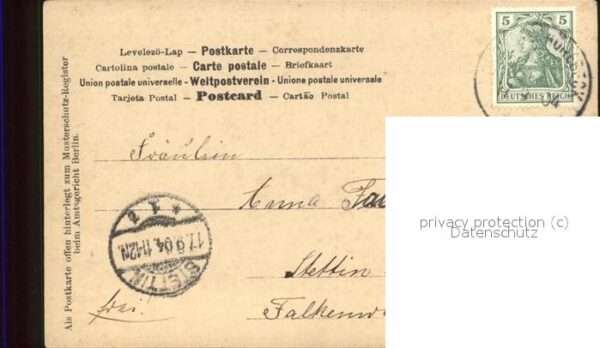 Levelező-Lap — Postkarte — Correspondenzkarte
Cartolina postale — Carte postale — Briefkaart
Union postale universelle — Weltpostverein — Unione postale universale
Tarjeta Postal — Postcard — Cartão Postal
Als Postkarte offen hinterlegt zum Musterschutz-Register
beim Amtsgericht Berlin.
5 5
DEUTSCHES REICH
04
Fräulein
Anna
STETTIN
17.9.04. 11-12N.
Stettin
frei.
privacy protection (c)
Datenschutz